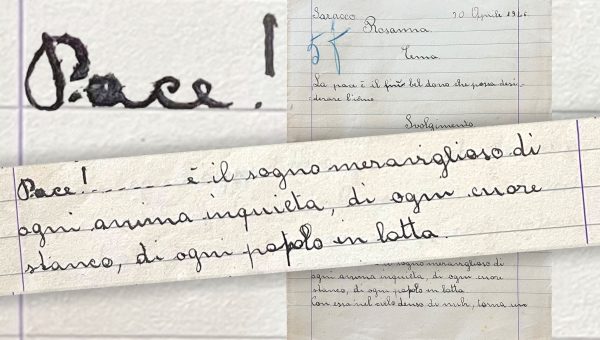 Pace!
Saracco 20 Aprile 1946
Rosanna
Tema
La pace è il più bel dono che possa desi-
derare l'uomo
Svolgimento
Pace!........ è il sogno meraviglioso di
ogni anima inquieta, di ogni cuore
stanco, di ogni popolo in lotta.
è il sogno meraviglioso di
ogni anima inquieta, di ogni cuore
stanco, di ogni popolo in lotta.
Con essa nel cielo denso di nubi, torna